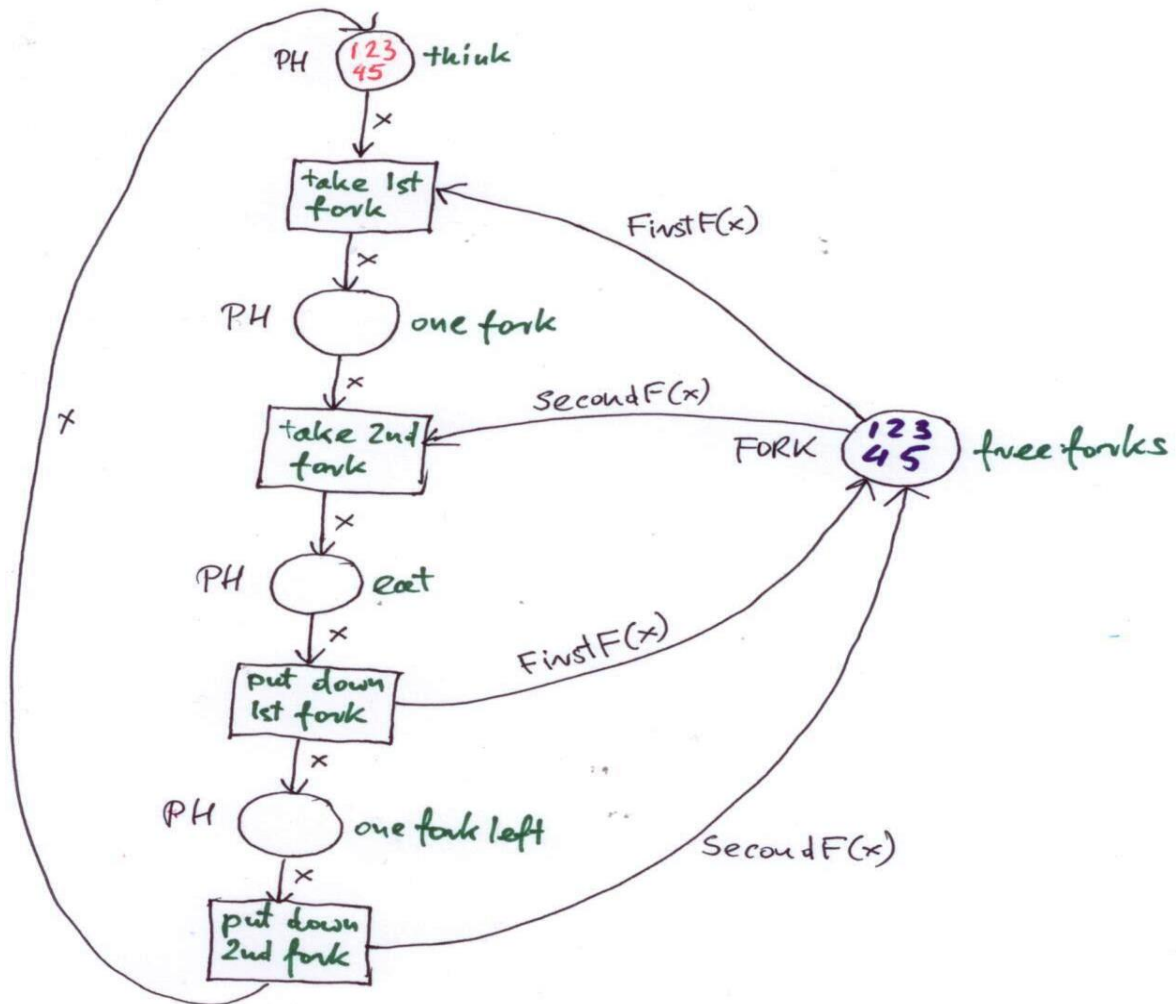 PH 123 think
45
x
take 1st
fork
FirstF(x)
x
PH one fork
x
SecondF(x)
take 2nd
fork
FORK 123 free forks
45
x
x
PH eat
x
FirstF(x)
put down
1st fork
x
PH one fork left
SecondF(x)
x
put down
2nd fork